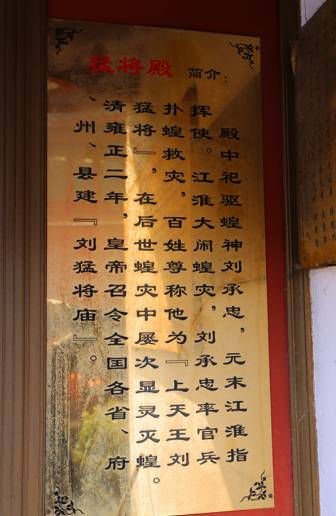 猛将殿 简介：
殿中祀驱蝗神刘承忠，元末江淮指
挥使。江淮大闹蝗灾，刘承忠率官兵
扑蝗救灾，百姓尊称他为『上天王刘
猛将』，在后世蝗灾中屡次显灵灭蝗。
清雍正二年，皇帝召令全国各省、府
、州、县建『刘猛将庙』。